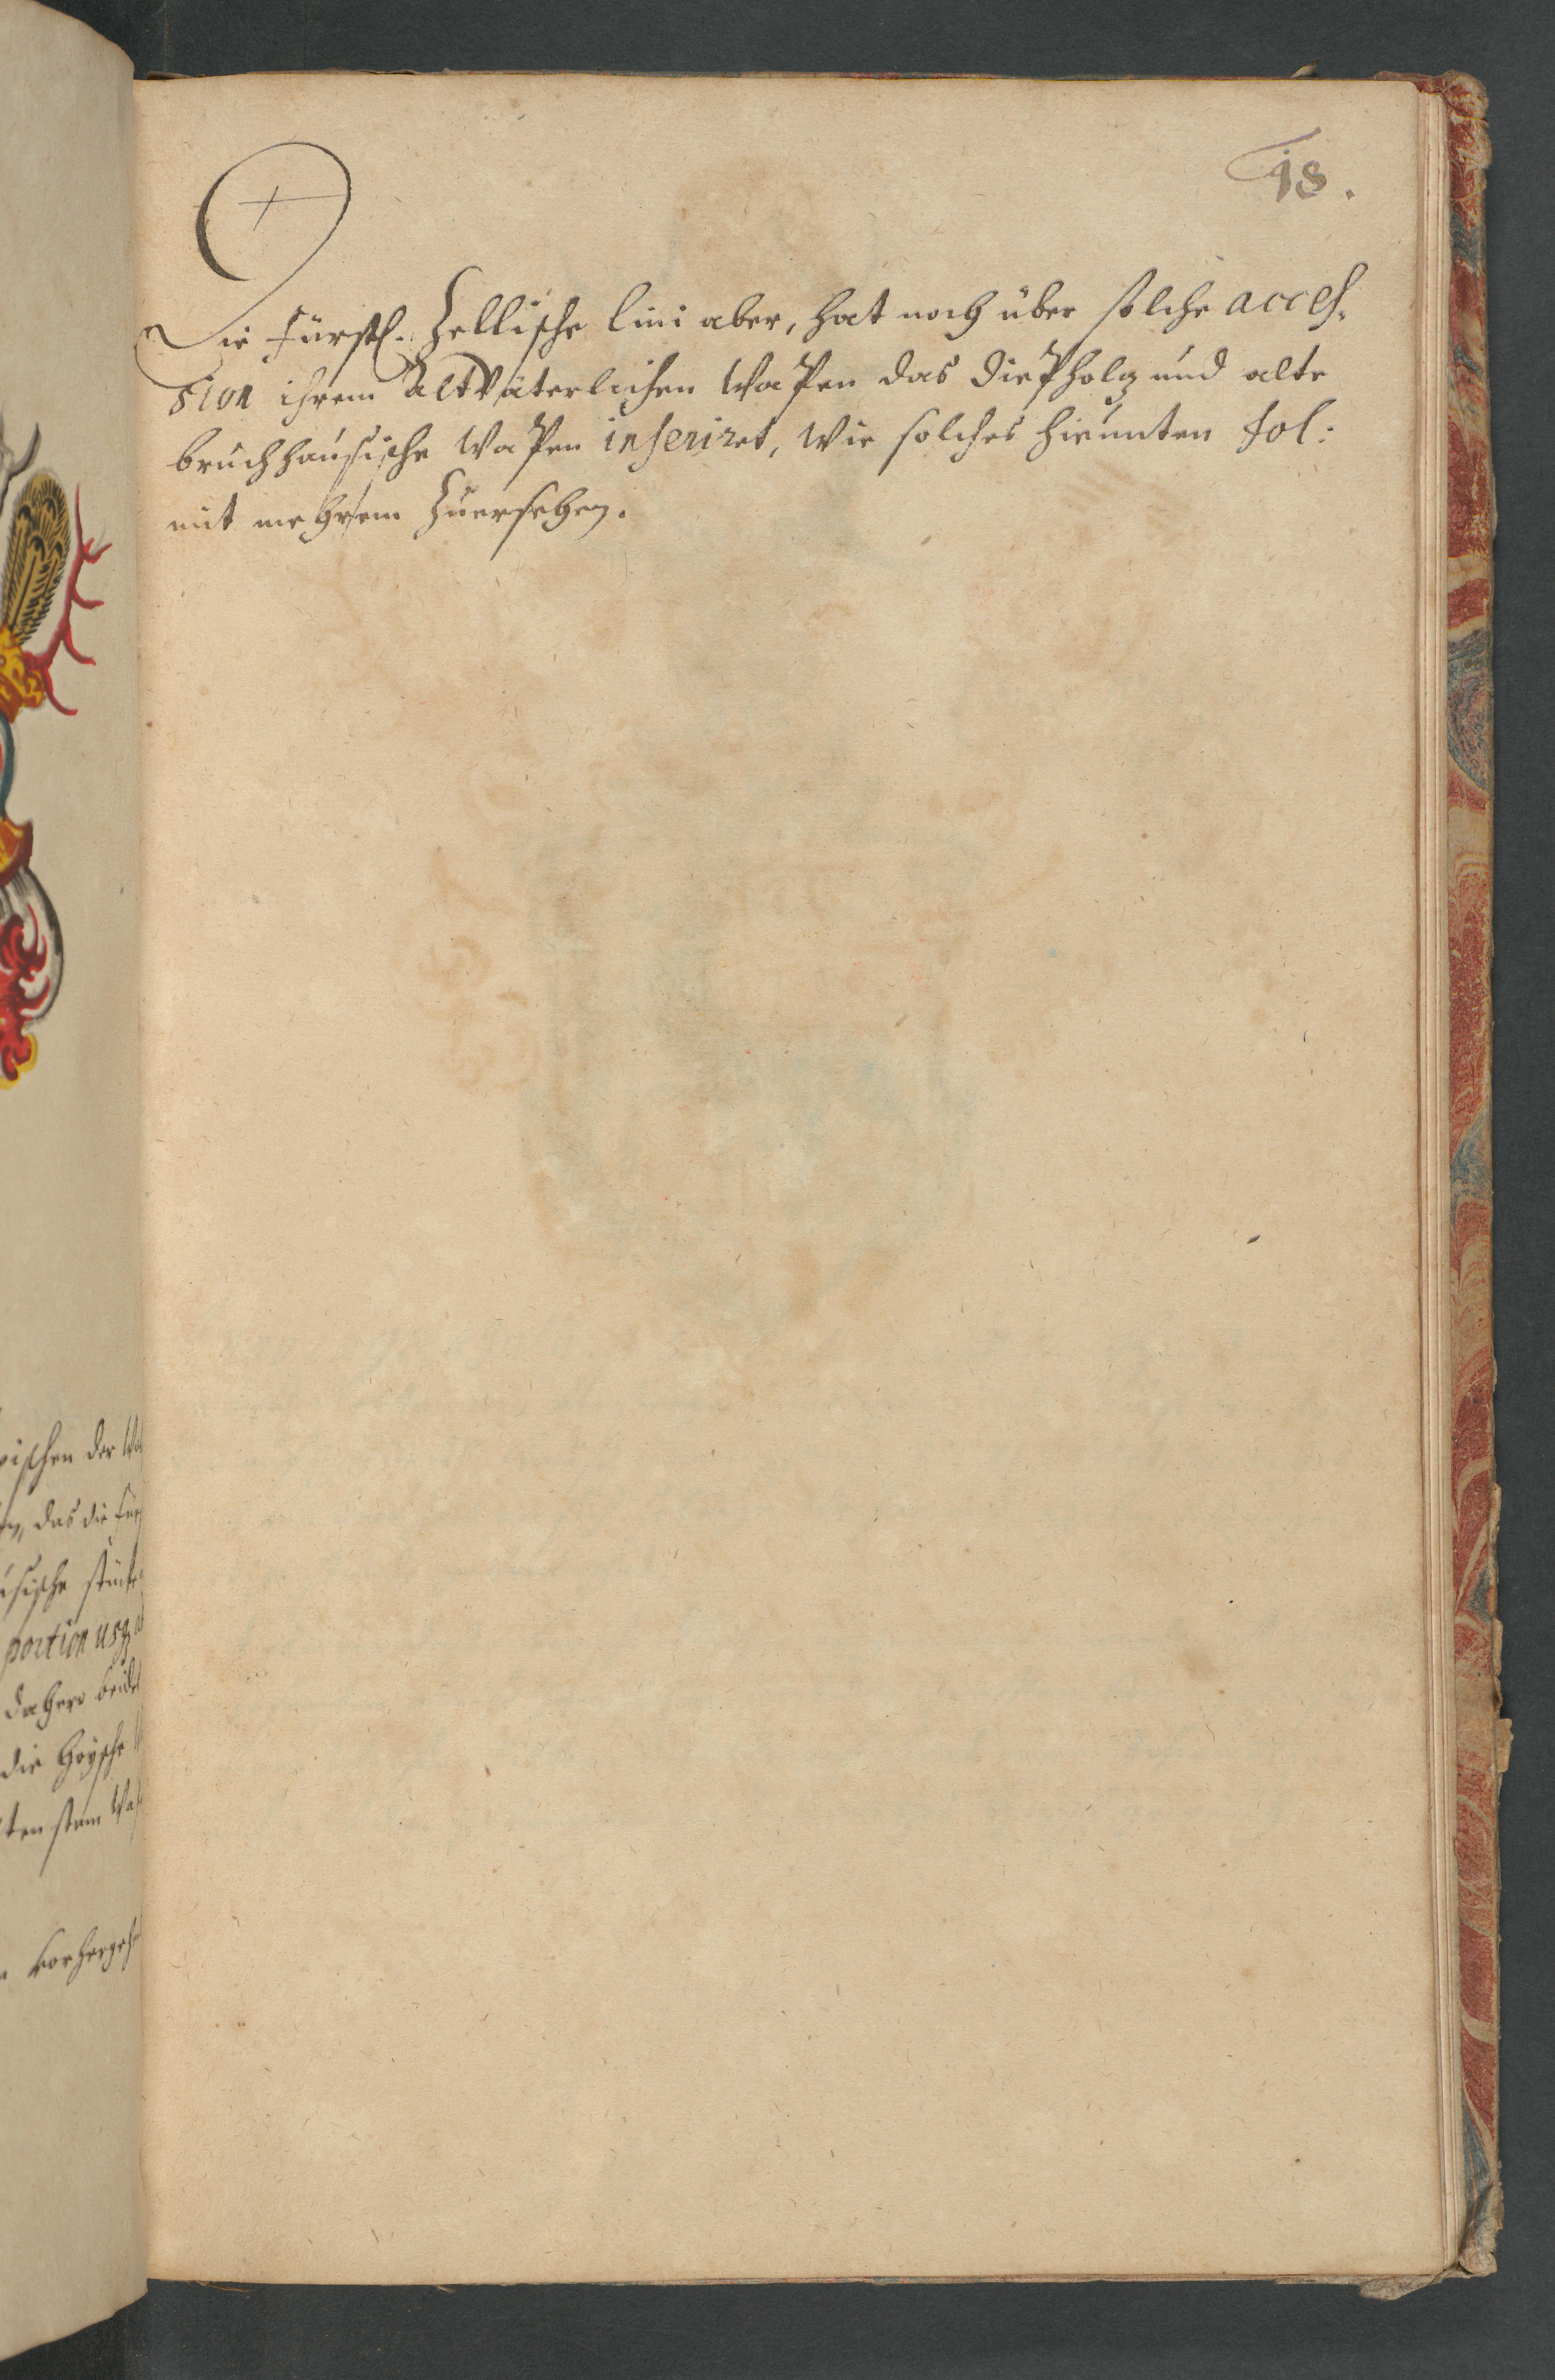 18.
Die Fürstl. Zellische lini aber, hat noch über solche acces-
sion ihrem Altväterlichen Wapen das Diepholz und alte
bruchhausische Wapen inseriret, Wie solches hieunten fol:
mit mehrem Zuersehen.
ischen der
das die
sische stück
portion usq
dahero beide
die Hoysche
ten stam Wa
vorhergeh